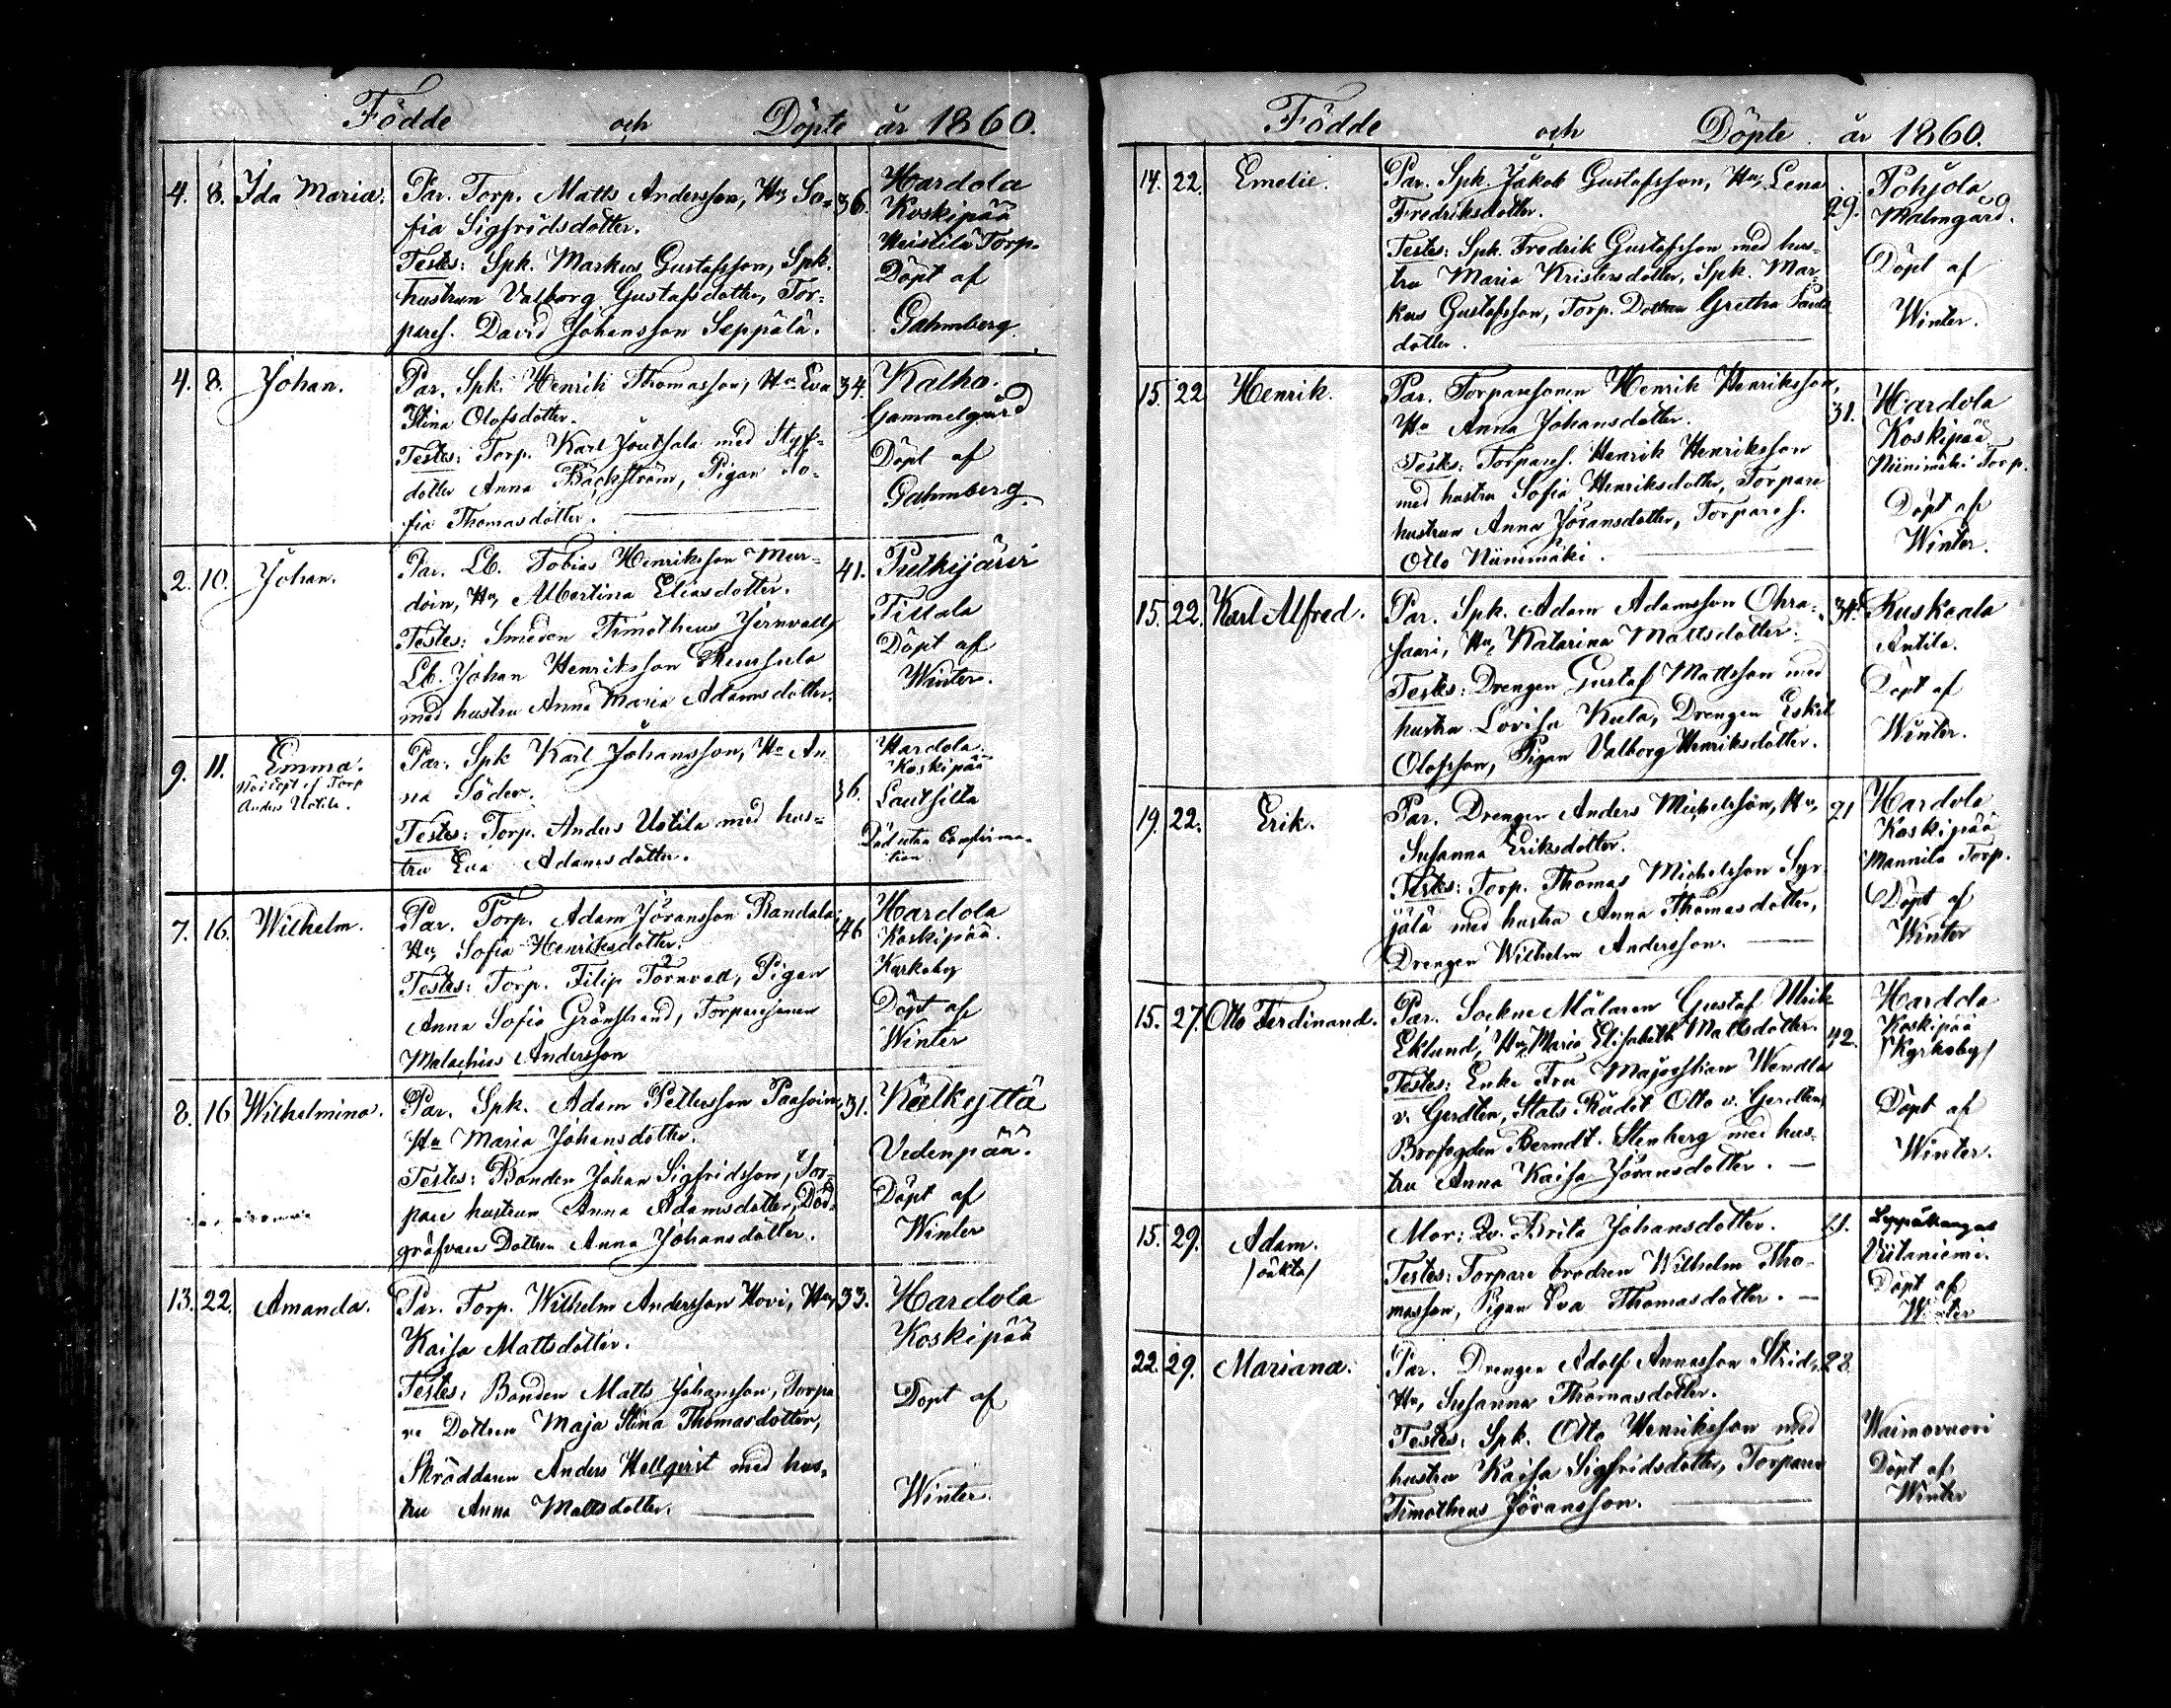 Födde och Döpte år 1860.
4. 8. Ida Maria. Par. Torp. Matts Andersson, Hu So- 36. Hardola
fia Sigfridsdotter. Koskipää
Heistilä Torp.
Testes: Spk. Markus Gustafsson, Spk. Döpt af
hustrun Valborg Gustafsdotter, Tor-
pares. David Johansson Seppälä. Gahmberg.
4. 8. Johan. Par. Spk. Henrik Thomasson, Hu Eva 34. Kalho.
Stina Olofsdotter. Gammelgård
Testes: Torp. Karl Joutsala med Styf- Döpt af
dotter Anna Bäckström, Pigan So- Gahmberg.
fia Thomasdotter.
2. 10. Johan. Par. Lb. Tobias Henriksson Mur- 41. Pulkijärvi
doin, Hu, Albertina Eliasdotter. Tillola
Testes: Smeden Timotheus Jernvall, Döpt af
Lb. Johan Henriksson
med hustru Anna Maria Adamsdotter. Winter.
9. 11. Emma. Par. Spk Karl Johansson, Hu An 36. Hardola.
Nöddöpt af Torp Koskipää
Anders Uotila. na Söder. Lautsilta
Testes: Torp. Anders Uotila med hus- Död utan Confirma-
tru Eva Adamsdotter. tion.
7. 16. Wilhelm. Par. Torp. Adam Jöransson Randala; 46 Hardola
Hu, Sofia Henriksdotter. Koskipää.
Testes: Torp. Filip Törnvall, Pigan Kyrkoby
Anna Sofia Grönstrand, Torparesonen Döpt af
Malachias Andersson Winter
8. 16 Wilhelmina. Par. Spk. Adam Pettersson Paasoin, 31. Kälkyttä
Hu Maria Johansdotter. Vedenpää.
Testes: Bonden Johan Sigfridsson, Tor-
pare hustrun Anna Adamsdotter, Död- Döpt af
gräfvare Dottren Anna Johansdotter. Winter
13. 22. Amanda. Par. Torp. Wilhelm Andersson Hovi, Hu, 33. Hardola
Kaisa Mattsdotter. Koskipää
Testes: Bonden Matts Johansson, Torpa Döpt af
re Dottren Maja Stina Thomasdotter,
Skräddaren Anders Hellqvist med hus- Winter.
tru Anna Mattsdotter.
Födde och Döpte år 1860.
14. 22. Emelie. Par. Spk. Jakob Gustafsson, Hu, Lena 29. Pohjola
Fredriksdotter. Malmgård.
Testes: Spk. Fredrik Gustafsson med hus-
tru Maria Kristersdotter, Spk. Mar- Döpt af
kus Gustafsson, Torp. Dottren Gretha
dotter. Winter.
15. 22 Henrik. Par. Torparesonen Henrik Henriksson, 31. Hardola
Hu Anna Johansdotter. Koskipää
Testes: Torpares. Henrik Henriksson Niinimäki Torp.
med hustru Sofia Henriksdotter, Torpare Döpt af
hustrun Anna Jöransdotter, Torpares. Winter.
Otto Niinimäki.
15. 22. Karl Alfred. Par. Spk. Adam Adamsson Ohra- 34. Ruskeala
saari, Hu, Katarina Mattsdotter. Antila.
Testes: Drengen Gustaf Mattsson med Döpt af
hustru Lovisa Kula, Drengen Eskil
Olofsson, Pigan Valborg Henriksdotter. Winter.
19. 22. Erik. Par. Drengen Anders Michelsson, Hu, 21 Hardola
Susanna Eriksdotter. Koskipää
Testes: Torp. Thomas Michelsson Syr- Mannila Torp.
jälä med hustru Anna Thomasdotter, Döpt af
Drengen Wilhelm Andersson. Winter
15. 27. Otto Ferdinand. Par. Sockne Målaren Gustaf Ulrik 42. Hardola
Eklund, Hu, Maria Elisabeth Mattsdotter. Koskipää
/Kyrkoby/
Testes: Enke Fru Majorskan Wendla
v. Gerdten, Stats Rådet Otto v. Gerdten, Döpt af
Brofogden Berndt Stenberg med hus-
tru Anna Kaisa Jöransdotter. Winter.
15. 29. Adam. Mor: Qv. Brita Johansdotter. 21. Leppäkangas
/oäkta/ Testes: Torpare brodren Wilhelm Tho- Viitaniemi.
masson, Pigan Eva Thomasdotter. Döpt af
Winter
22. 29. Mariana. Par. Drengen Adolf Annasson Strid, 28.
Hu, Susanna Thomasdotter.
Testes: Spk. Otto Henriksson med Waimovuori
hustru Kaisa Sigfridsdotter, Torparen Döpt af
Timotheus Jöransson. Winter